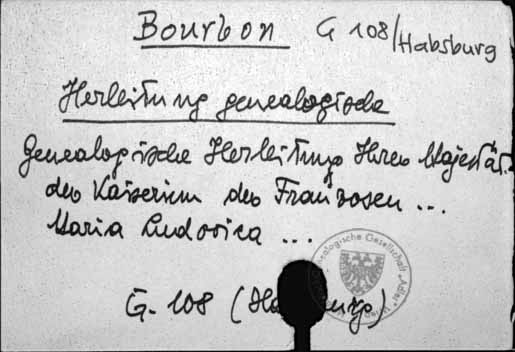 Bourbon G 108/Habsburg
Herleitung genealogische
Genealogische Herleitung Ihrer Majestät
der Kaiserinn der Franzosen ...
Maria Ludovica ...
Genealogische Gesellschaft "Adler" Wien
G. 108 (Ha urg)